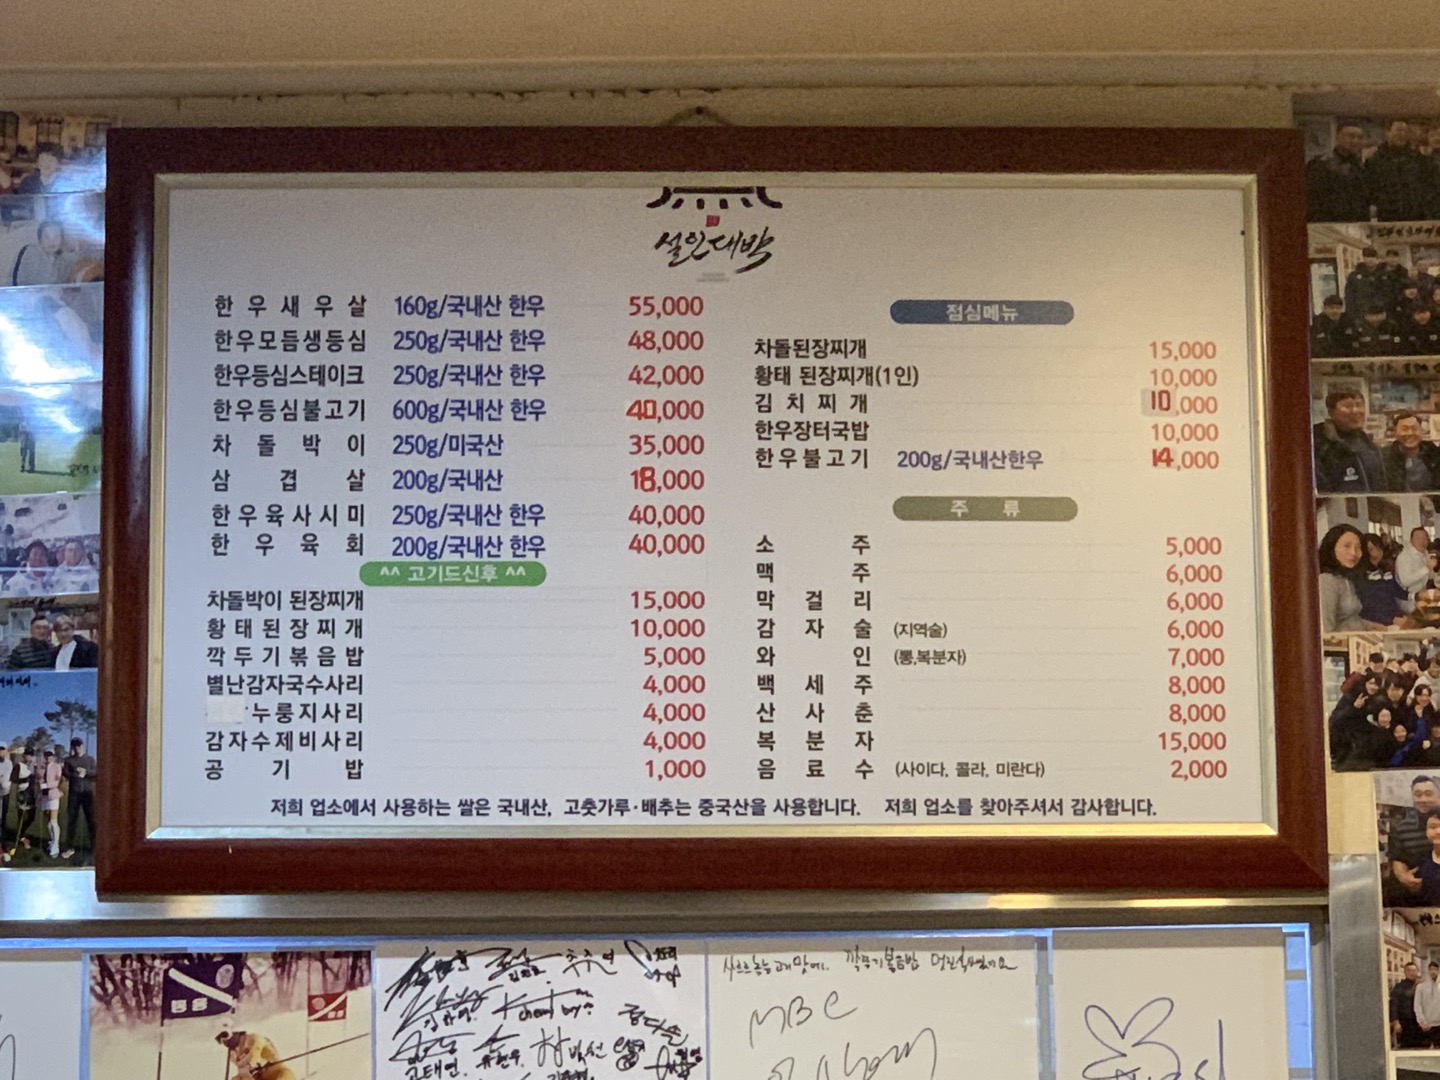 설인대박
한우새우살 160g/국내산 한우 55,000
한우모듬생등심 250g/국내산 한우 48,000
한우등심스테이크 250g/국내산 한우 42,000
한우등심불고기 600g/국내산 한우 40,000
차돌박이 250g/미국산 35,000
삼겹살 200g/국내산 18,000
한우육사시미 250g/국내산 한우 40,000
한우육회 200g/국내산 한우 40,000
^^ 고기드신후 ^^
차돌박이 된장찌개 15,000
황태된장찌개 10,000
깍두기볶음밥 5,000
별난감자국수사리 4,000
누룽지사리 4,000
감자수제비사리 4,000
공기밥 1,000
점심메뉴
차돌된장찌개 15,000
황태 된장찌개(1인) 10,000
김치찌개 10,000
한우장터국밥 10,000
한우불고기 200g/국내산한우 14,000
주류
소주 5,000
맥주 6,000
막걸리 6,000
감자술 (지역술) 6,000
와인 (뽕,복분자) 7,000
백세주 8,000
산사춘 8,000
복분자 15,000
음료수 (사이다, 콜라, 미란다) 2,000
저희 업소에서 사용하는 쌀은 국내산, 고춧가루·배추는 중국산을 사용합니다. 저희 업소를 찾아주셔서 감사합니다.
깍두기볶음밥
MBC